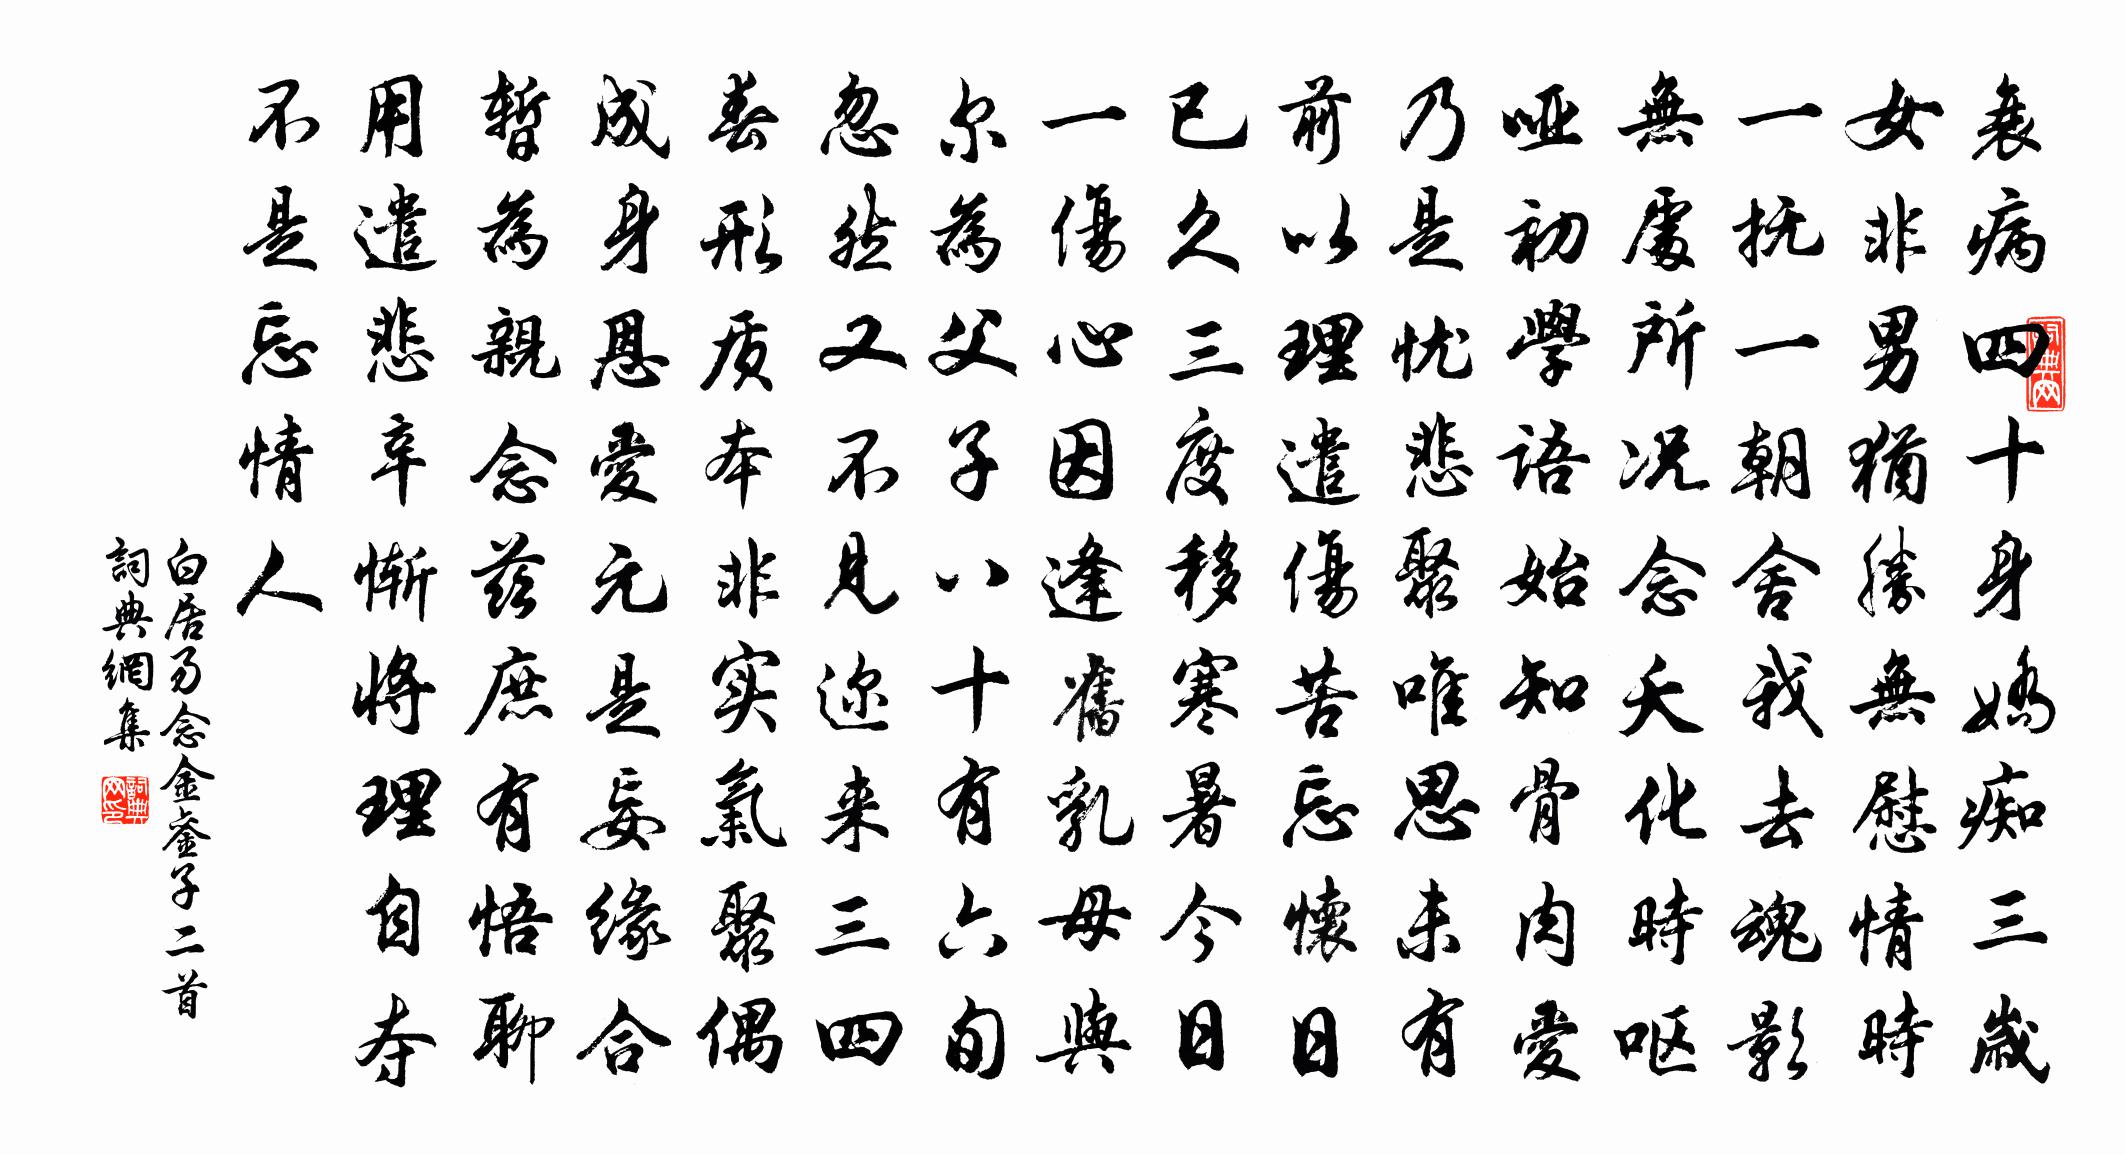 衰病四十身嬌痴三歲
女非男猶勝無慰情時
一抚一朝舍我去魂影
無處所况念夭化時呕
哑初學語始知骨肉愛
乃是忧悲聚唯思未有
前以理遣傷苦忘懷日
已久三度移寒暑今日
一傷心因逢舊乳母與
尔為父子八十有六旬
忽然又不見迩来三四
春形质本非实氣聚偶
成身恩愛元是妄缘合
暫為親念兹庶有悟聊
用遣悲辛慚将理自夺
不是忘情人
白居易念金銮子二首
詞典網集
詞典網
詞典網印